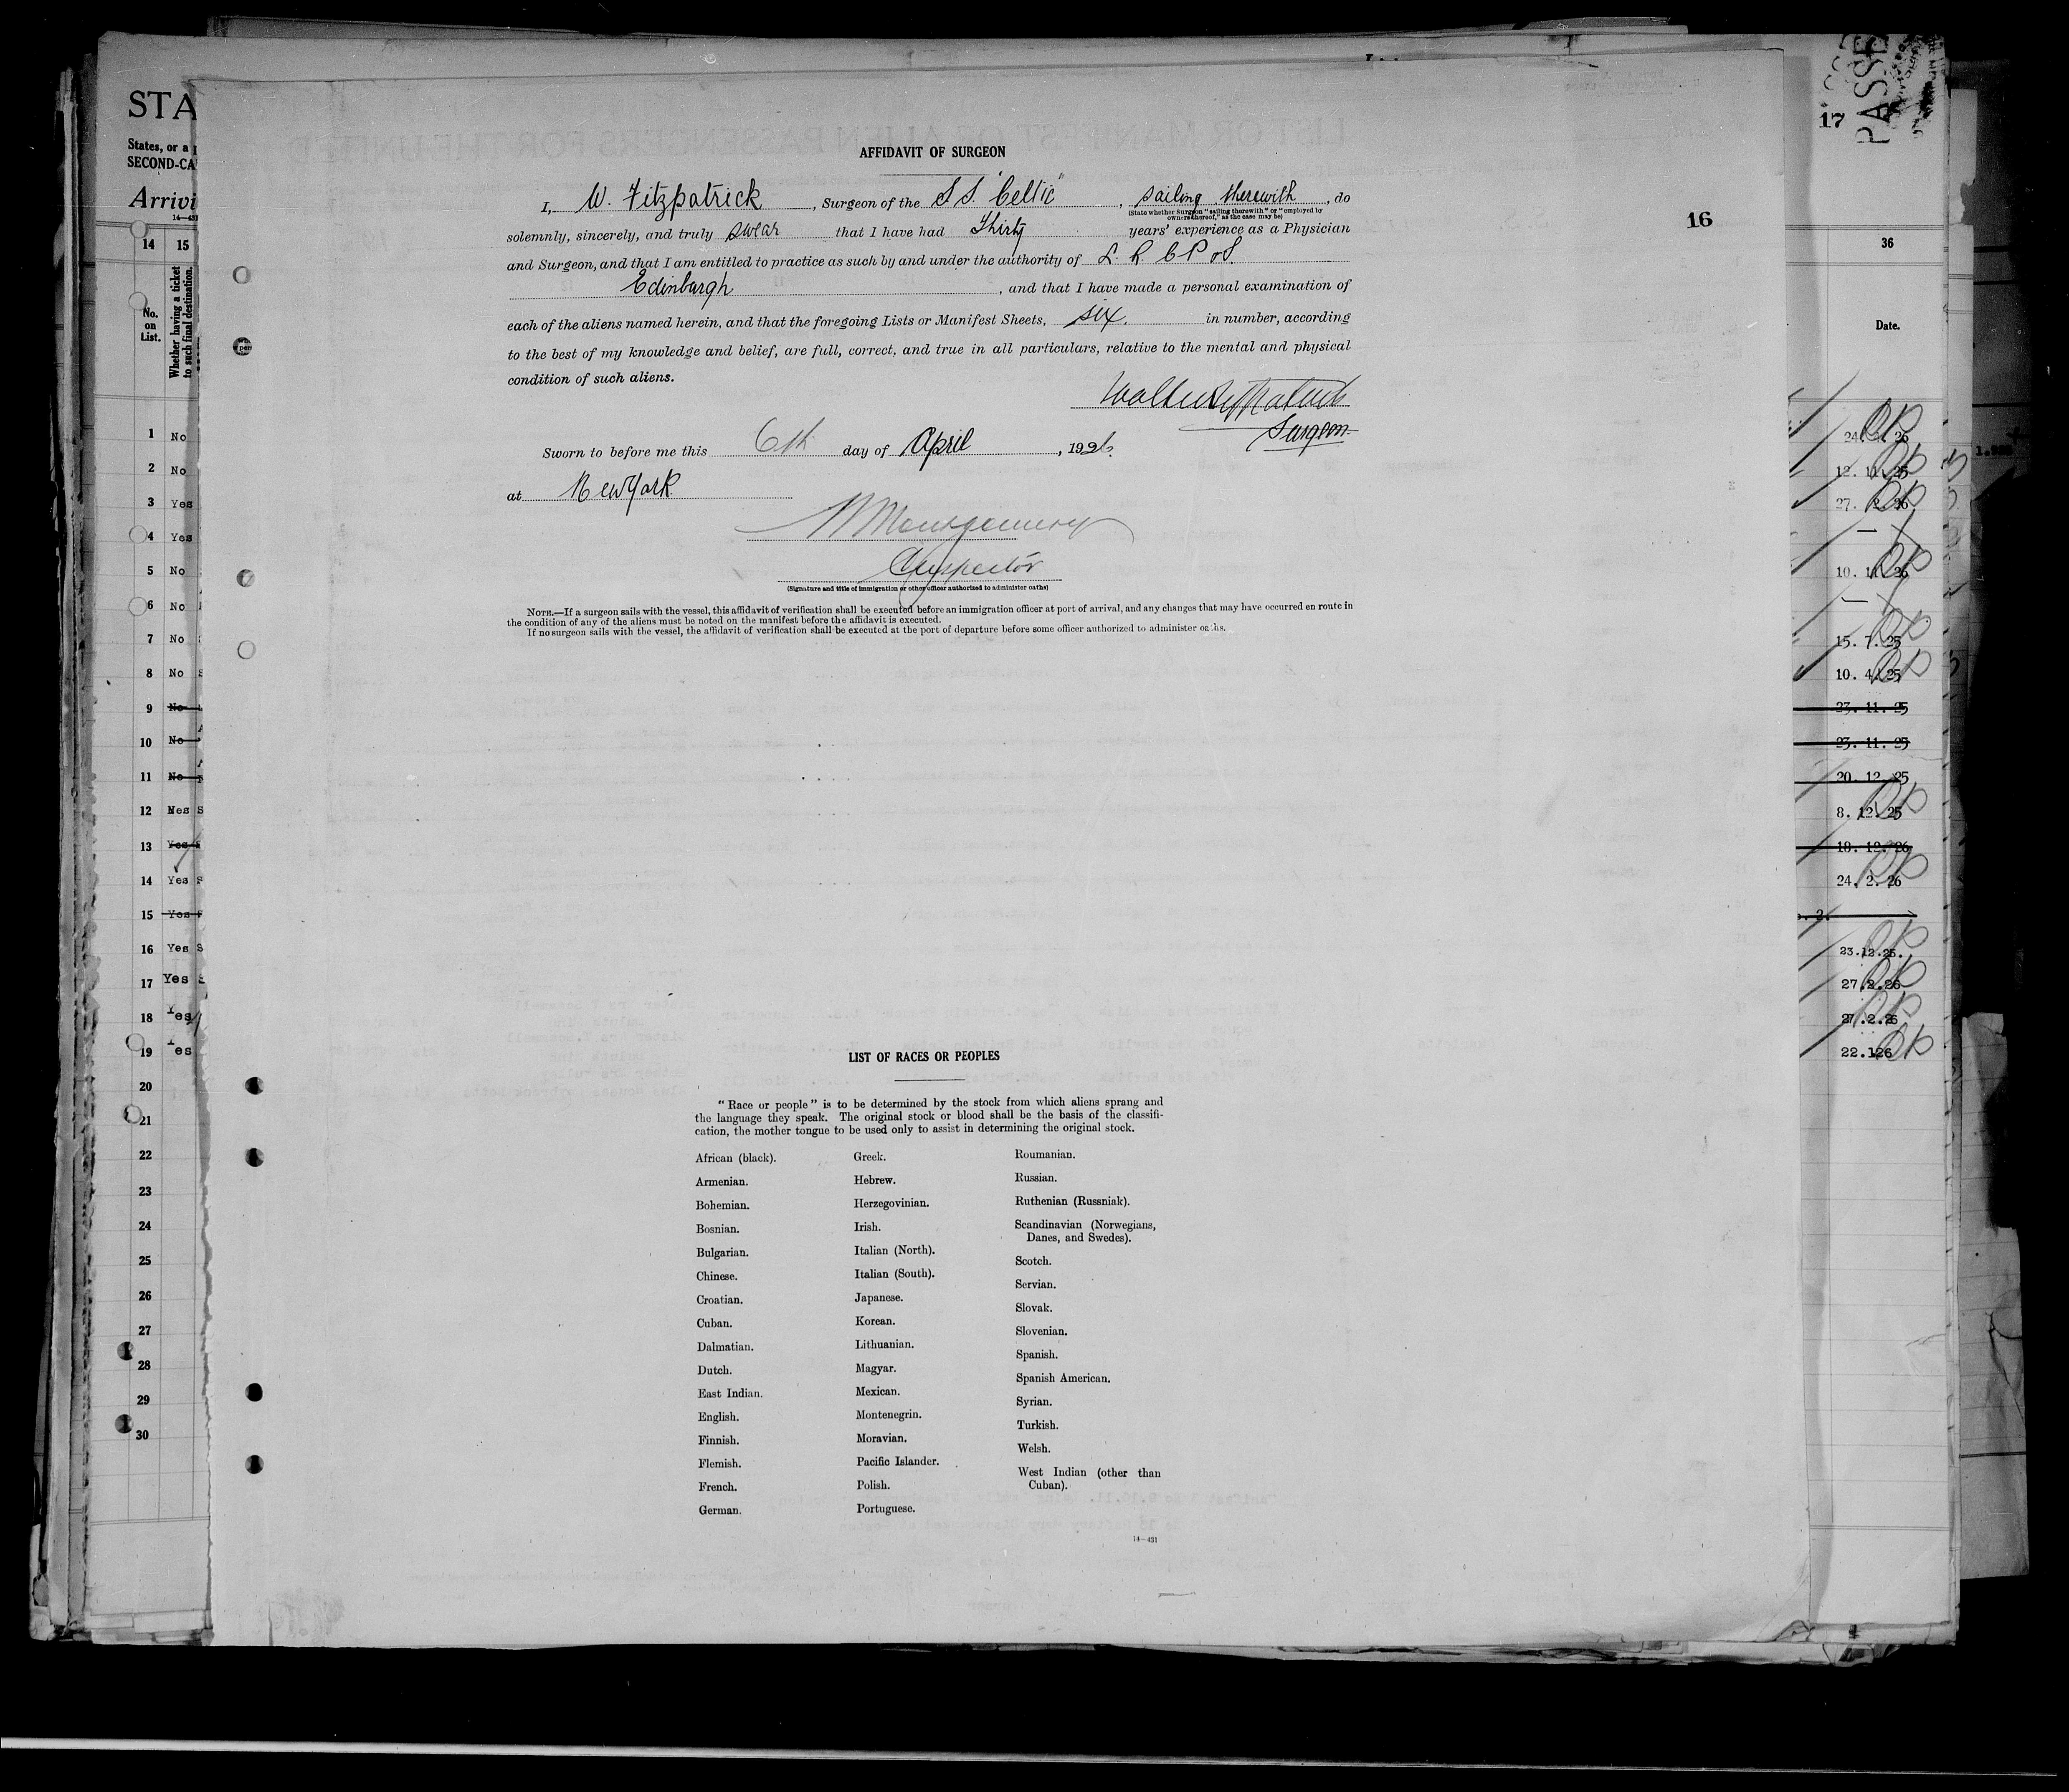 AFFIDAVIT OF SURGEON
I, W. Fitzpatrick, Surgeon of the S.S. "Celtic", sailing therewith, do
(State whether Surgeon "sailing therewith" or "employed by
owners thereof," as the case may be)
solemnly, sincerely, and truly swear that I have had Thirty years' experience as a Physician
and Surgeon, and that I am entitled to practice as such by and under the authority of L. R C P & S.
Edinburgh, and that I have made a personal examination of
each of the aliens named herein, and that the foregoing Lists or Manifest Sheets, six. in number, according
to the best of my knowledge and belief, are full, correct, and true in all particulars, relative to the mental and physical
condition of such aliens.
Walter Fitzpatrick
Surgeon.
Sworn to before me this 6th day of April, 1926.
at New York.
Montgomery
Inspector
(Signature and title of immigration or other officer authorized to administer oaths)
NOTE.—If a surgeon sails with the vessel, this affidavit of verification shall be executed before an immigration officer at port of arrival, and any changes that may have occurred en route in
the condition of any of the aliens must be noted on the manifest before the affidavit is executed.
If no surgeon sails with the vessel, the affidavit of verification shall be executed at the port of departure before some officer authorized to administer oaths.
16
LIST OF RACES OR PEOPLES
"Race or people" is to be determined by the stock from which aliens sprang and
the language they speak. The original stock or blood shall be the basis of the classifi-
cation, the mother tongue to be used only to assist in determining the original stock.
African (black).
Armenian.
Bohemian.
Bosnian.
Bulgarian.
Chinese.
Croatian.
Cuban.
Dalmatian.
Dutch.
East Indian.
English.
Finnish.
Flemish.
French.
German.
Greek.
Hebrew.
Herzegovinian.
Irish.
Italian (North).
Italian (South).
Japanese.
Korean.
Lithuanian.
Magyar.
Mexican.
Montenegrin.
Moravian.
Pacific Islander.
Polish.
Portuguese.
Roumanian.
Russian.
Ruthenian (Russniak).
Scandinavian (Norwegians,
Danes, and Swedes).
Scotch.
Servian.
Slovak.
Slovenian.
Spanish.
Spanish American.
Syrian.
Turkish.
Welsh.
West Indian (other than
Cuban).
14—431
STA
States, or a
SECOND-CA
Arrivi
14—431
14 15
No.
on
List.
Whether having a ticket
to such final destination.
1 No
2 No
3 Yes
4 Yes
5 No
6 No
7 No
8 No
9 No
10 No
11 No
12 Nes
13 Yes
14 Yes
15 Yes
16 Yes
17 Yes
18 Yes
19 Yes
20
21
22
23
24
25
26
27
28
29
30
17
PASSE
36
Date.
12. 11. 25
27. 2. 26
15. 7. 25
10. 4. 25
23. 11. 25
23. 11. 25
20. 12. 25
8. 12. 25
18. 12. 26
24. 2. 26
23.12.25.
27.2.26
27.2.26
22.126